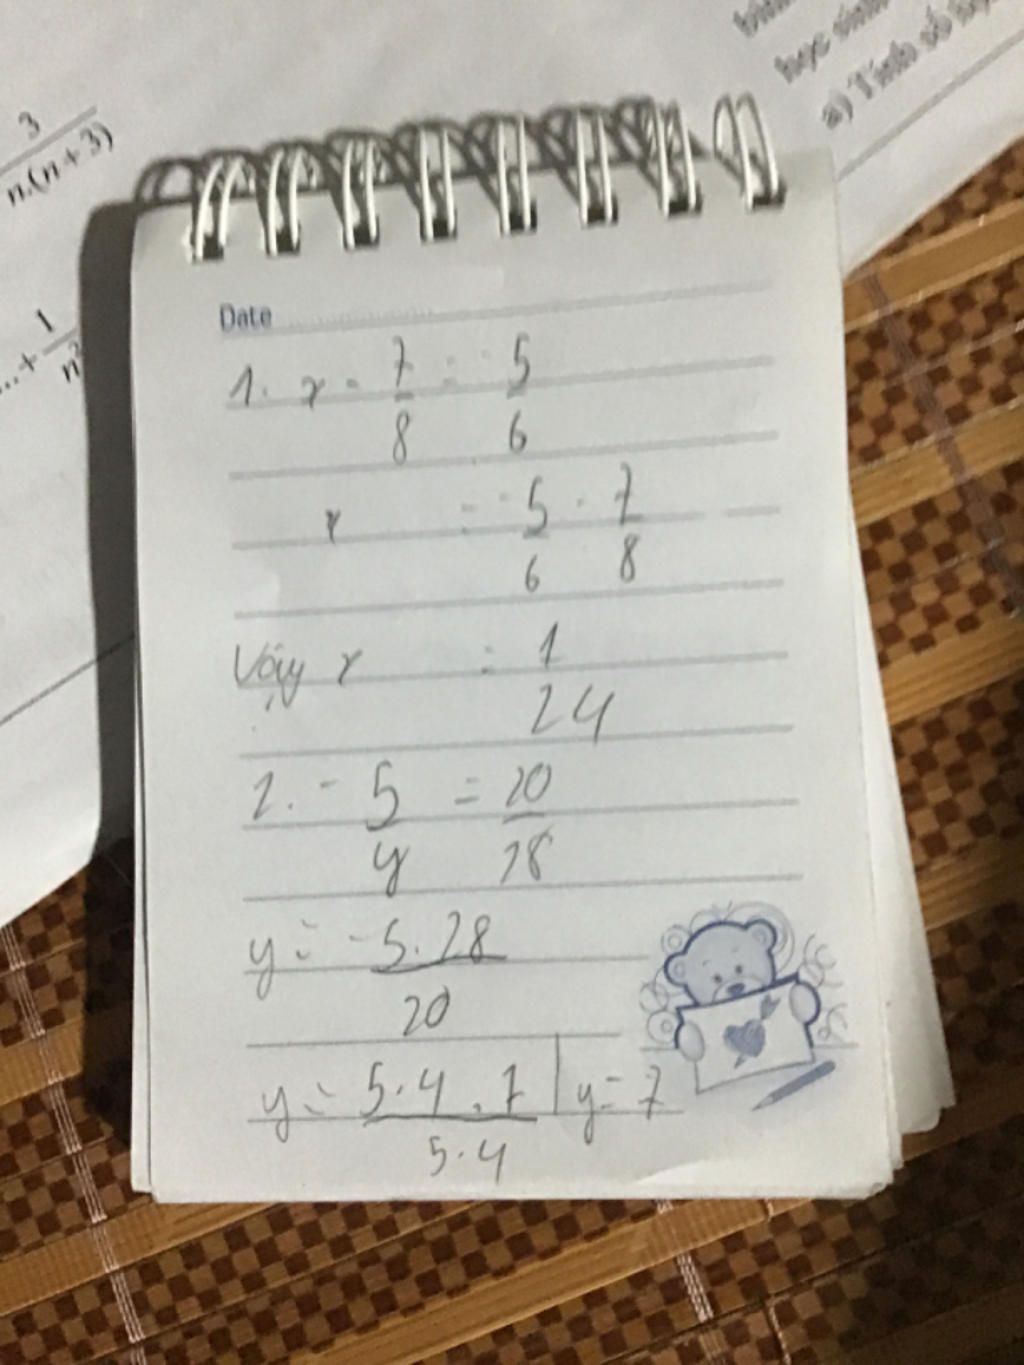 3
n.(n+3)
...+ 1
n²
học sinh
a) Tính số
Date
1. x - 7 = -5
8 6
x = -5 . 7
6 8
Vậy x = 1
24
2. - 5 = 20
y 28
y = -5.28
20
y = 5.4.7 | y = 7
5.4